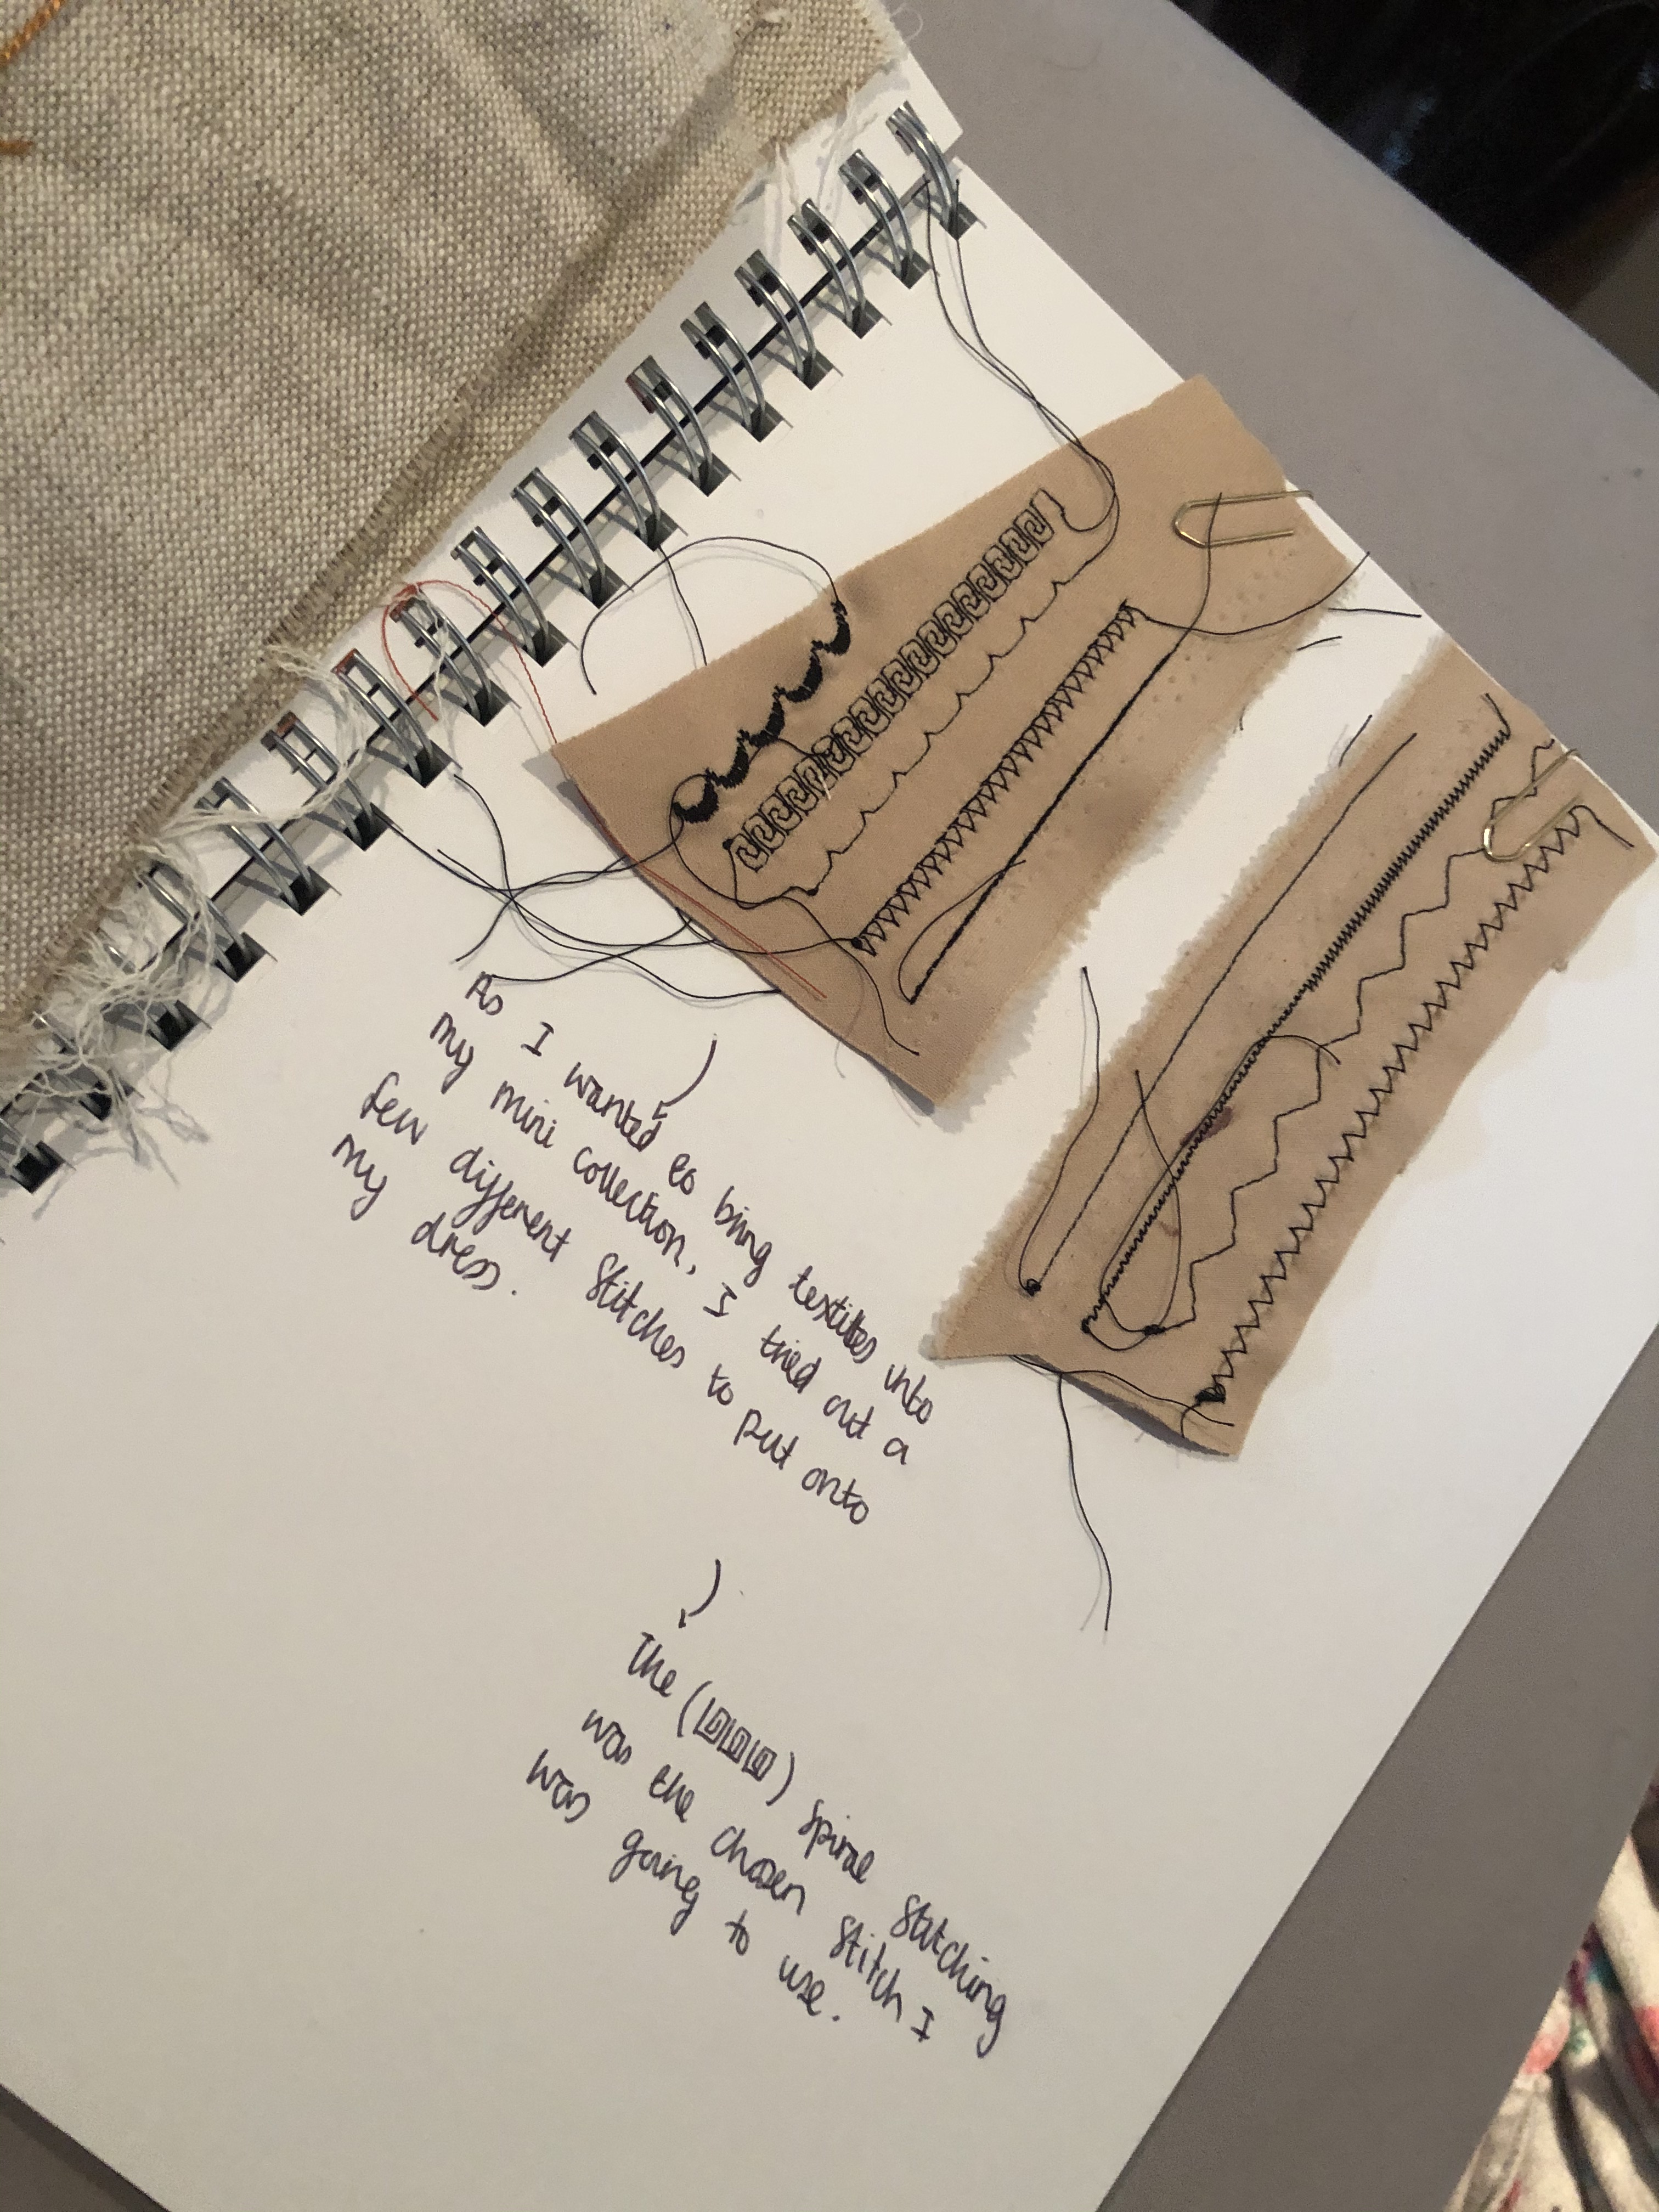 As I wanted to bring textiles into
my mini collection, I tried out a
few different stitches to put onto
my dress.
The ( ) spiral stitching
was the chosen stitch I
was going to use.